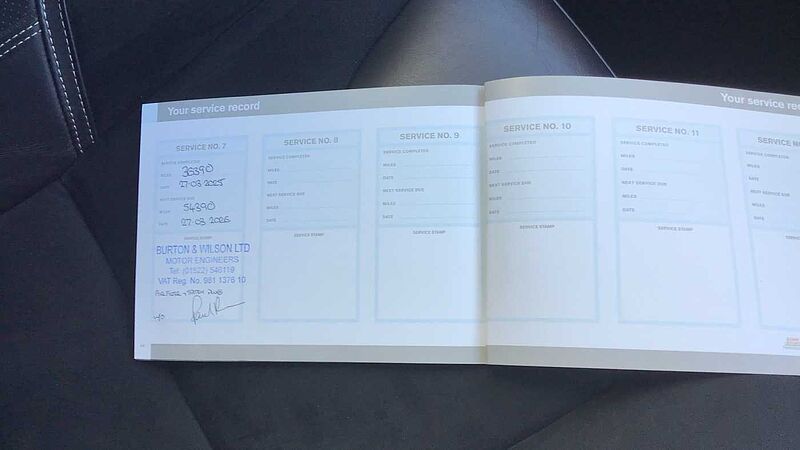 Your service record
SERVICE NO. 7
SERVICE COMPLETED
MILES 36390
DATE 27-03-2025
NEXT SERVICE DUE
MILES 54390
DATE 27.03.2026
SERVICE STAMP
BURTON & WILSON LTD
MOTOR ENGINEERS
Tel: (01522) 546119
VAT Reg. No. 981 1376 10
SERVICE NO. 8
SERVICE COMPLETED
MILES
DATE
NEXT SERVICE DUE
MILES
DATE
SERVICE STAMP
SERVICE NO. 9
SERVICE COMPLETED
MILES
DATE
NEXT SERVICE DUE
MILES
DATE
SERVICE STAMP
Your service re
SERVICE NO. 10
SERVICE COMPLETED
MILES
DATE
NEXT SERVICE DUE
MILES
DATE
SERVICE STAMP
SERVICE NO. 11
SERVICE COMPLETED
MILES
DATE
NEXT SERVICE DUE
MILES
DATE
SERVICE STAMP
SERVICE N
SERVICE COMPLETED
MILES
DATE
NEXT SERVICE DUE
MILES
DATE
SERVICE